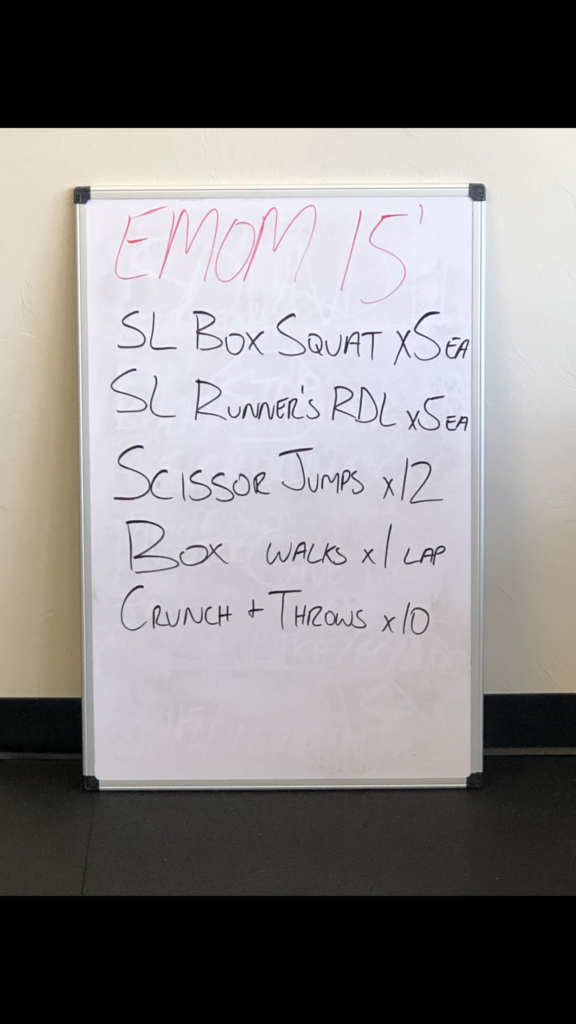 EMOM 15'
SL BOX SQUAT x5 EA
SL RUNNER'S RDL x5 EA
SCISSOR JUMPS x12
BOX WALKS x1 LAP
CRUNCH + THROWS x10